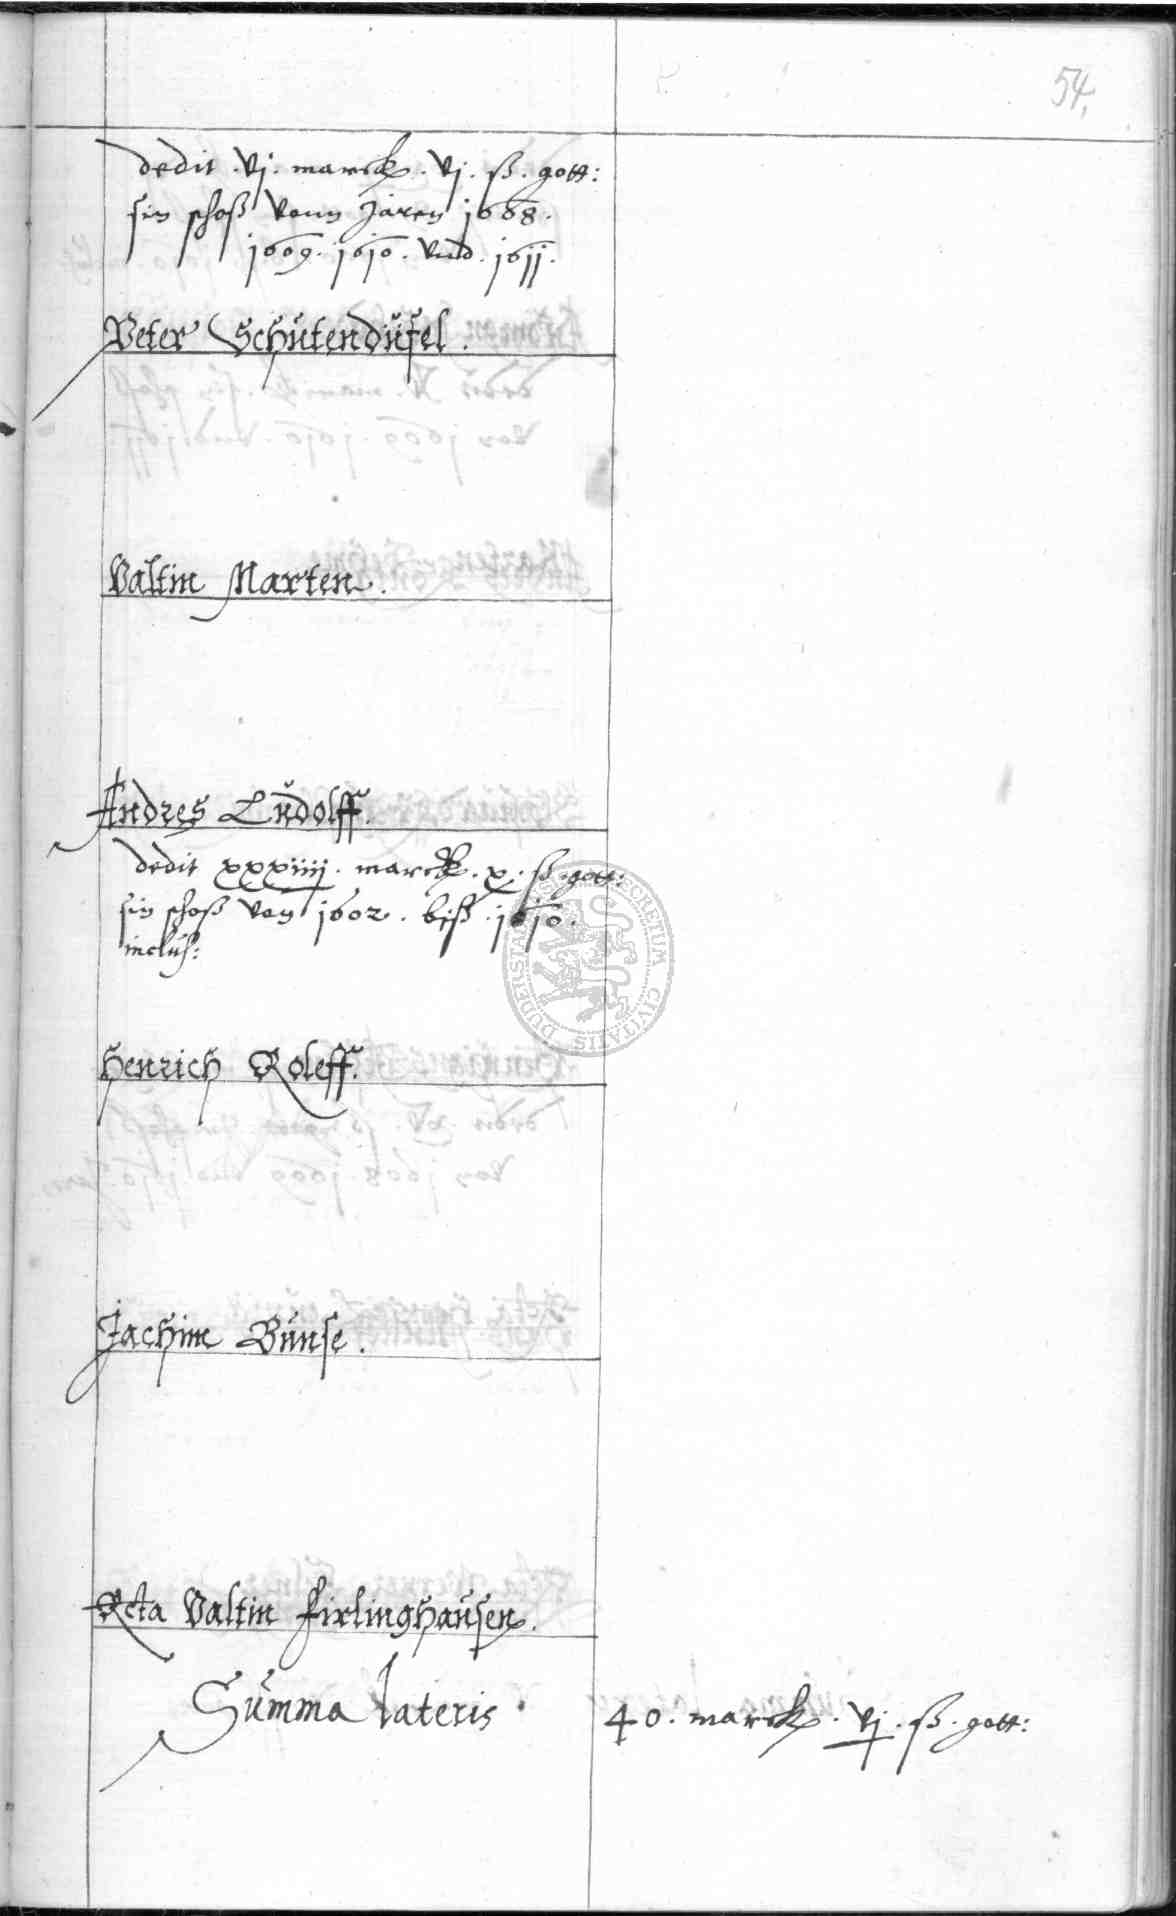 54.
dedit . vj . marck . vj . ß . gott:
sin schoß vonn Jaren 1608 .
1609 . 1610 . vnd . 1611 .
Peter Schütendüfel .
Valtin Marten .
Andres Ludolff .
dedit xxxiiij . marck . x . ß . gott:
sin schoß von 1602 . biß . 1610 .
inclus:
Henrich Roleff .
Jachim Bunse .
Rcta Valtin Firlinghausen .
Summa lateris . 40 . marck . vj . ß . gott:
SECRETUM CIVITATIS